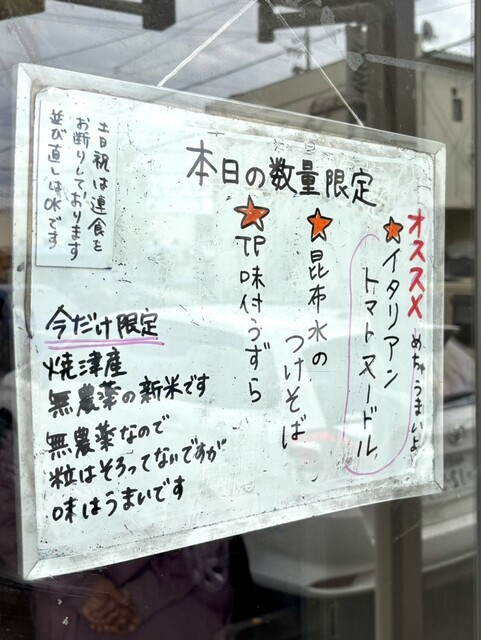 本日の数量限定
オススメ めちゃうまいよ
★イタリアン
トマトヌードル
★昆布水の
つけそば
★TP味付うずら
土日祝は連食を
お断りしております
並び直しはOKです
今だけ限定
焼津産
無農薬の新米です
無農薬なので
粒はそろってないですが
味はうまいです